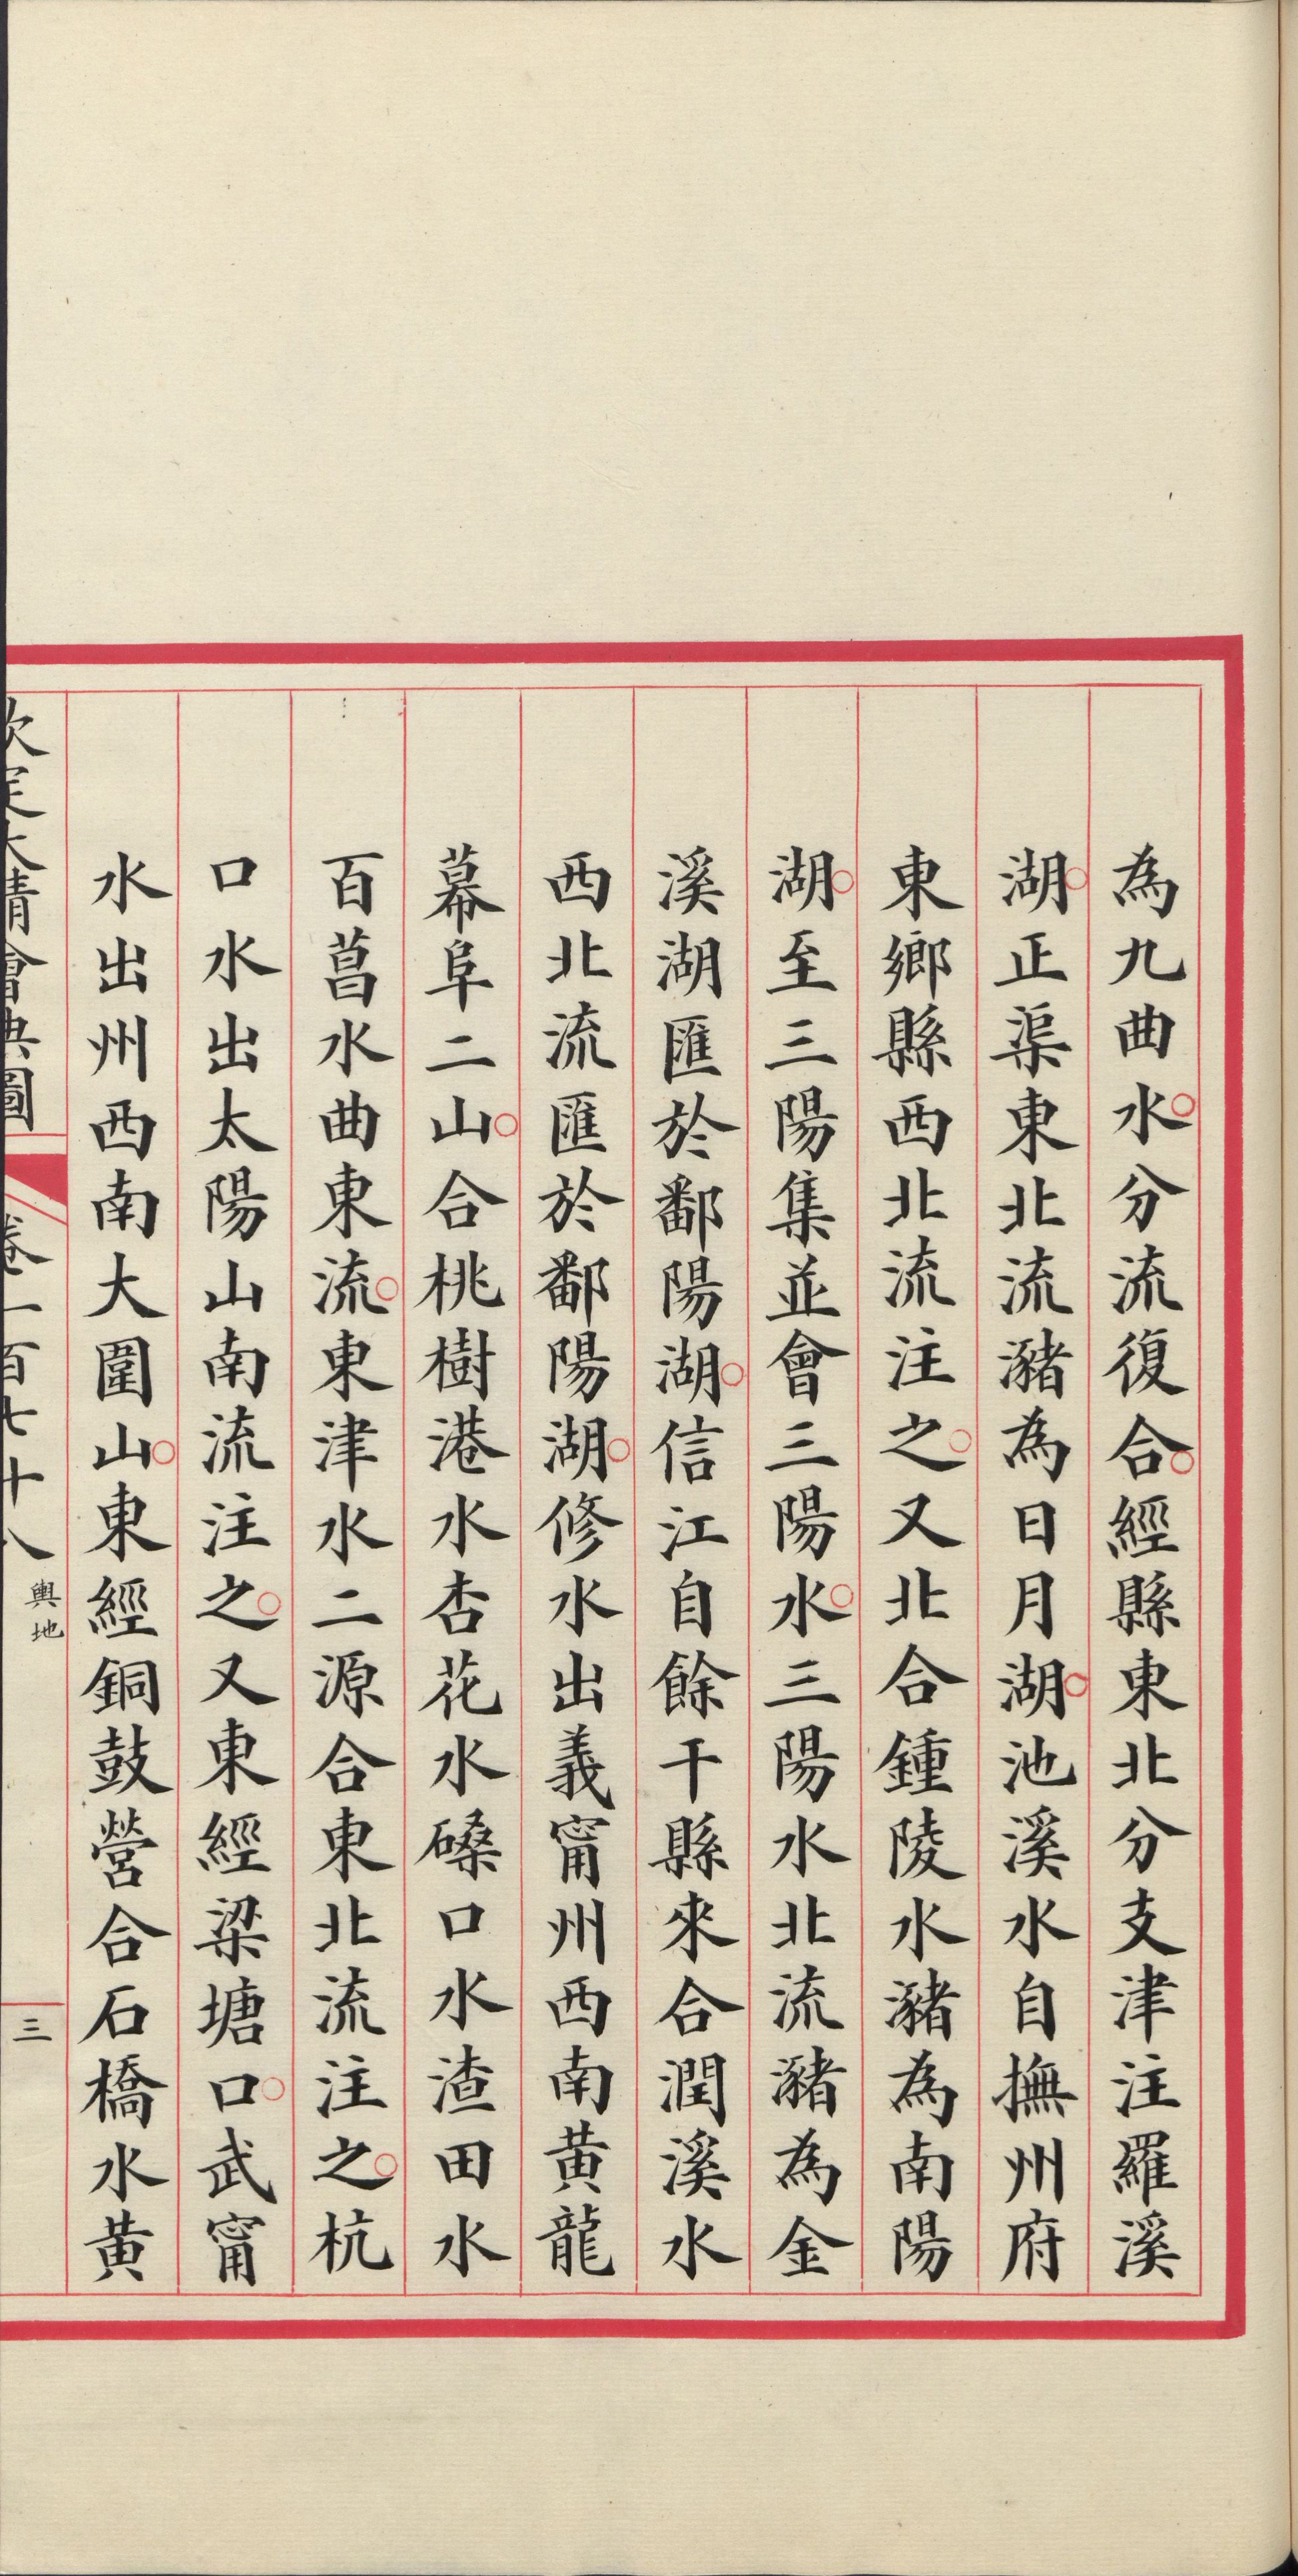 為九曲水○分流復合○經縣東北分支津注羅溪
湖○正渠東北流瀦為日月湖○池溪水自撫州府
東鄉縣西北流注之○又北合鍾陵水瀦為南陽
湖○至三陽集並會三陽水○三陽水北流瀦為金
溪湖匯於鄱陽湖○信江自餘干縣來合潤溪水
西北流匯於鄱陽湖○修水出義甯州西南黃龍
幕阜二山○合桃樹港水杏花水磉口水渣田水
百菖水曲東流○東津水二源合東北流注之○杭
口水出太陽山南流注之○又東經梁塘口○武甯
水出州西南大圍山○東經銅鼓營合石橋水黃
欽定大清會典圖 卷一百七十八 輿地 三